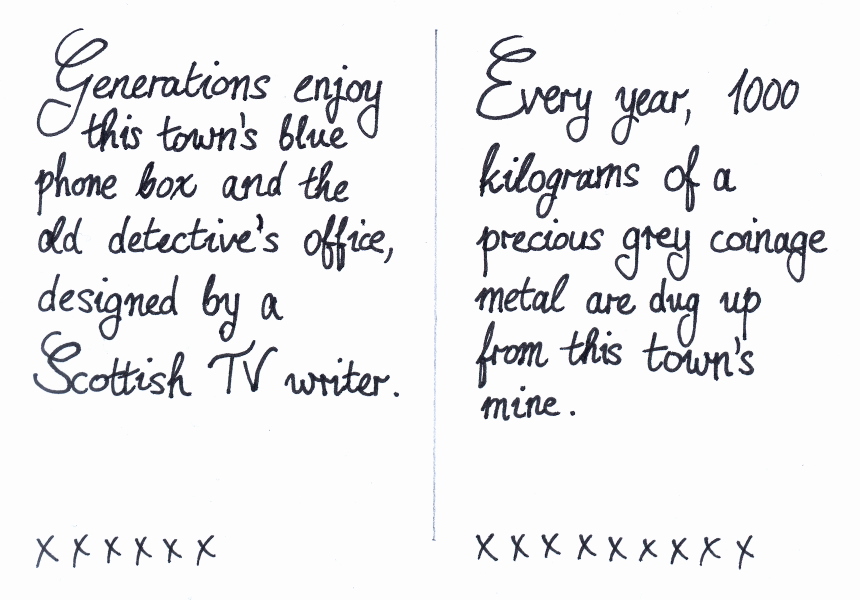 Generations enjoy
this town's blue
phone box and the
old detective's office,
designed by a
Scottish TV writer.
x x x x x x
Every year, 1000
kilograms of a
precious grey coinage
metal are dug up
from this town's
mine.
x x x x x x x x x